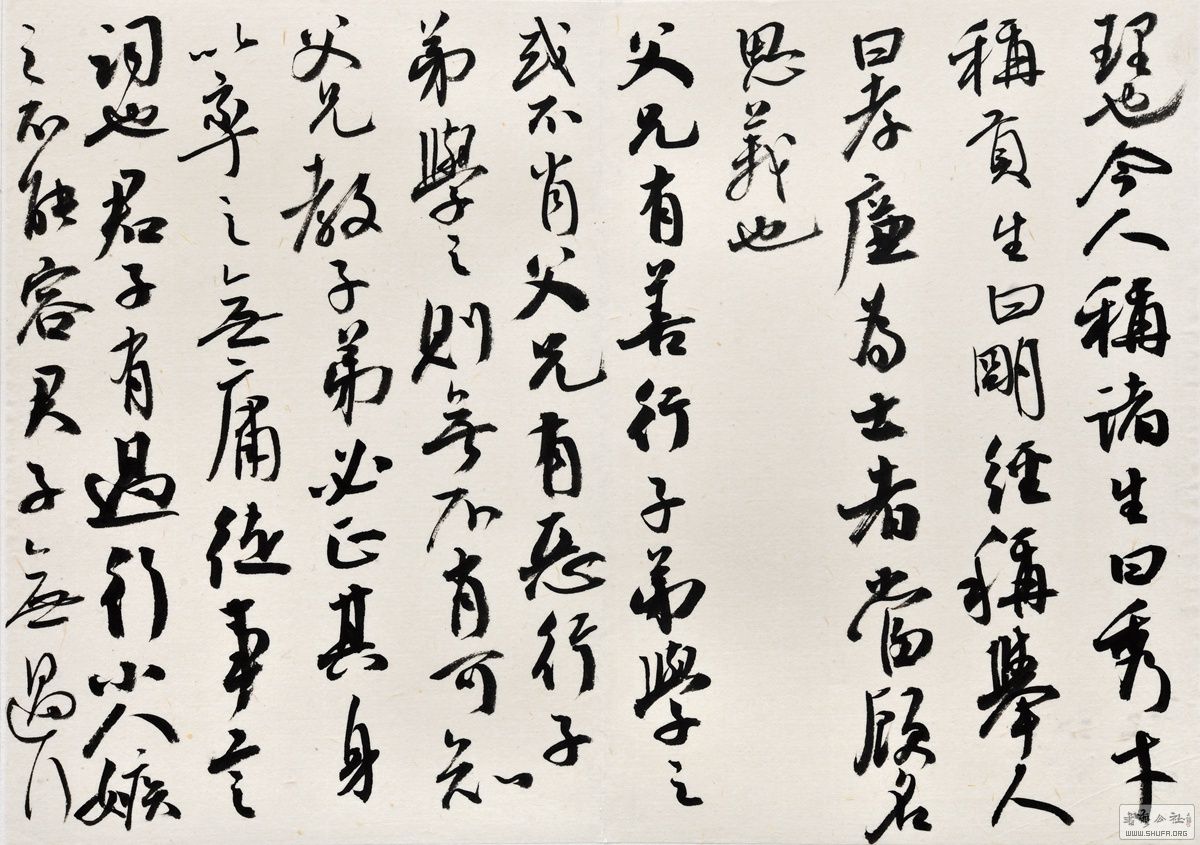 理也今人稱諸生曰秀才
稱貢生曰明經稱舉人
曰孝廉為士者當顧名
思義也
父兄有善行子弟學之
或不肖父兄有惡行子
弟學之則無不肖可知
父兄教子弟必正其身
以率之無庸徒事言
詞也君子有過行小人嫉
之不能容君子無過行
WWW.SHUFA.ORG